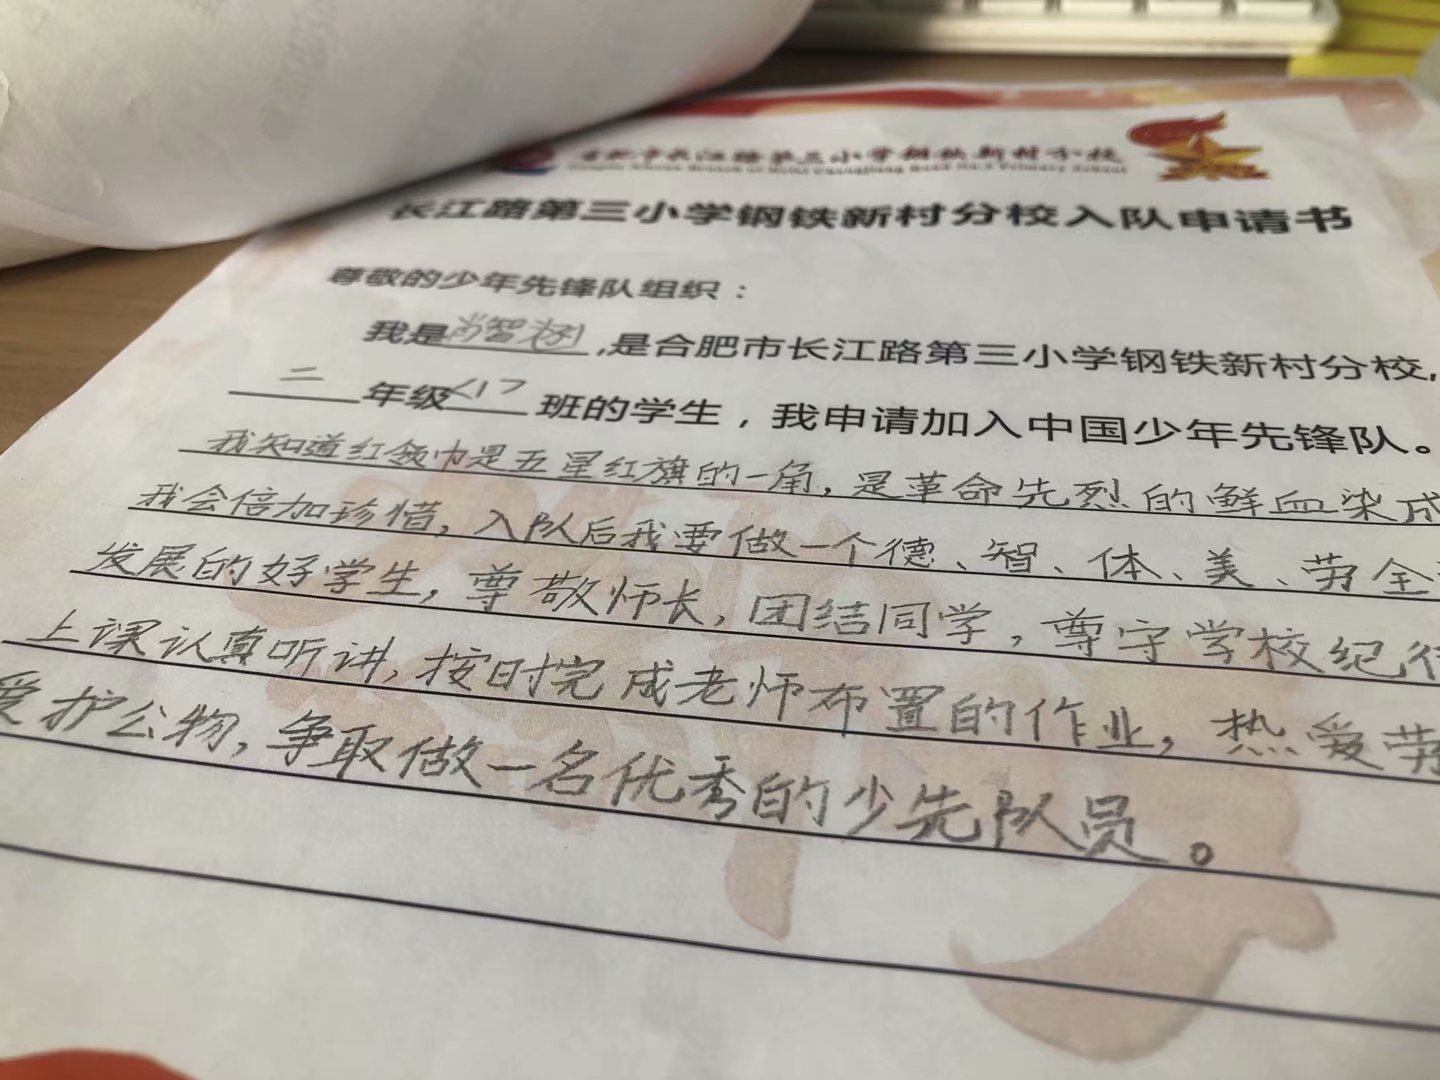 合肥市长江路第三小学钢铁新村分校
长江路第三小学钢铁新村分校入队申请书
尊敬的少年先锋队组织：
我是尚智,是合肥市长江路第三小学钢铁新村分校,
二年级<1>班的学生，我申请加入中国少年先锋队。
我知道红领巾是五星红旗的一角,是革命先烈的鲜血染成
我会倍加珍惜,入队后我要做一个德、智、体、美、劳全
发展的好学生,尊敬师长,团结同学,尊守学校纪
上课认真听讲,按时完成老师布置的作业,热爱劳
爱护公物,争取做一名优秀的少先队员。